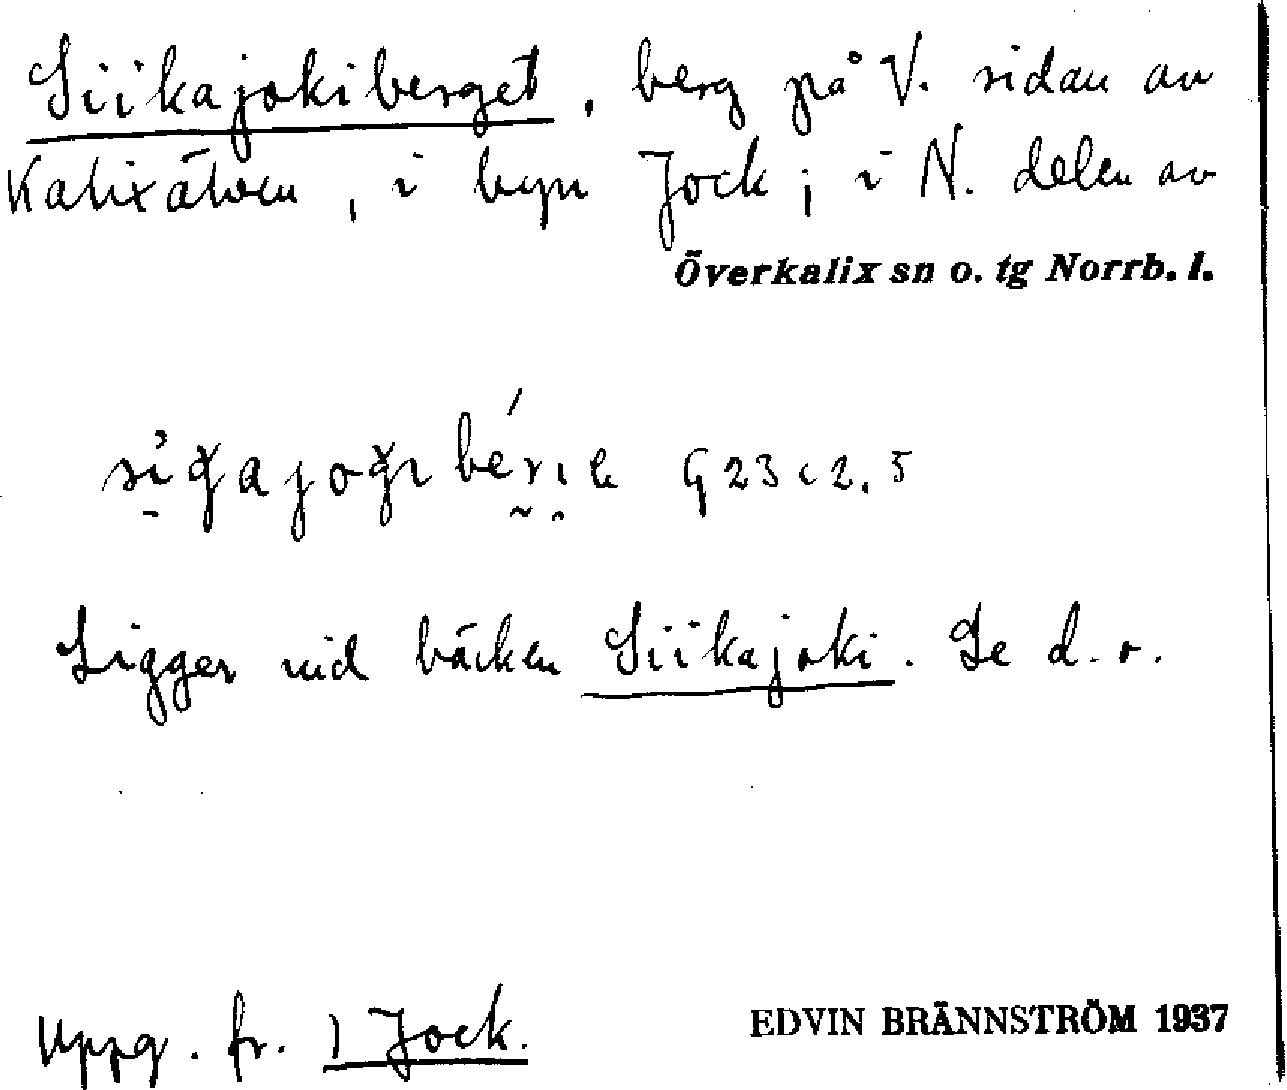 Siikajokiberget, berg på V. sidan av
Kalixälven, i byn Jock; i N. delen av
Överkalix sn o. tg Norrb. l.
G 23 c 2.5
Ligger vid bäcken Siikajoki. Se d. o.
Uppg. fr. 1 Jock.
EDVIN BRÄNNSTRÖM 1937